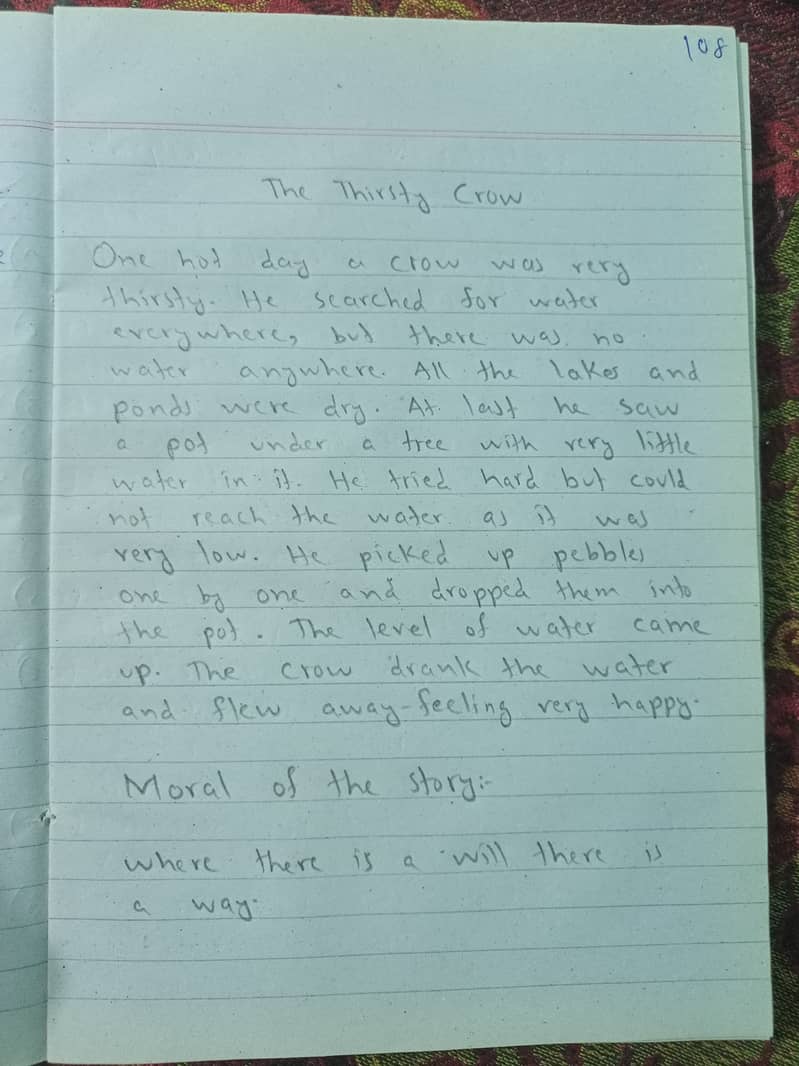 108
The Thirsty Crow
One hot day a crow was very
thirsty. He searched for water
everywhere, but there was no
water anywhere. All the lakes and
ponds were dry. At last he saw
a pot under a tree with very little
water in it. He tried hard but could
not reach the water as it was
very low. He picked up pebbles
one by one and dropped them into
the pot. The level of water came
up. The crow drank the water
and flew away-feeling very happy.
Moral of the story:-
where there is a will there is
a way.